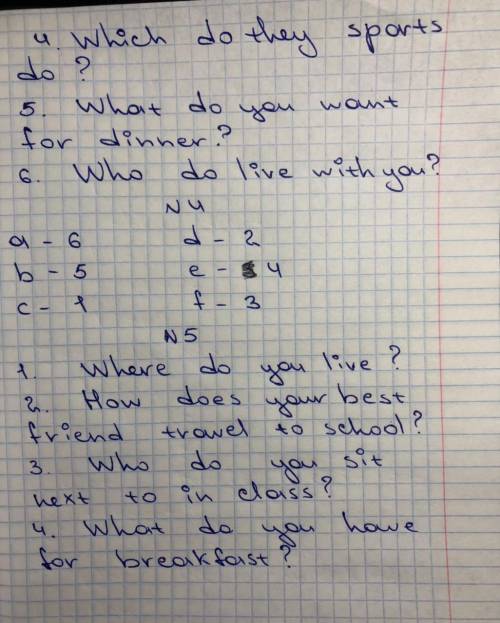 4. Which do they sports
do?
5. What do you want
for dinner?
6. Who do live with you?
N4
a - 6 d - 2
b - 5 e - 4
c - 1 f - 3
N5
1. Where do you live?
2. How does your best
friend travel to school?
3. Who do you sit
next to in class?
4. What do you have
for breakfast?